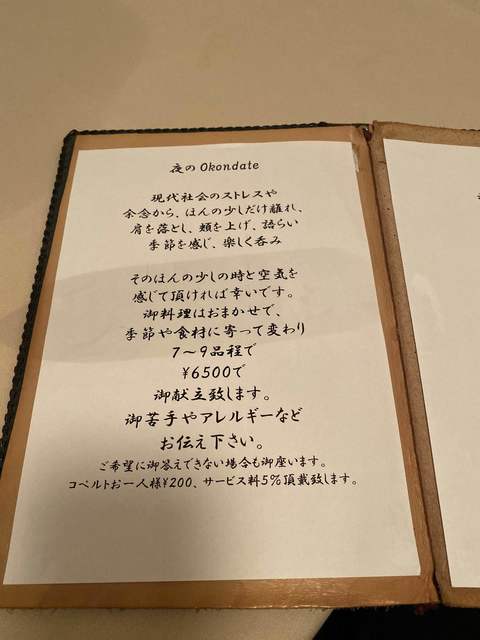 夜のOkondate
現代社会のストレスや
余念から、ほんの少しだけ離れ、
肩を落とし、頬を上げ、語らい
季節を感じ、楽しく呑み
そのほんの少しの時と空気を
感じて頂ければ幸いです。
御料理はおまかせで、
季節や食材に寄って変わり
7〜9品程で
¥6500で
御献立致します。
御苦手やアレルギーなど
お伝え下さい。
ご希望に御答えできない場合も御座います。
コペルトお一人様¥200、サービス料5%頂戴致します。